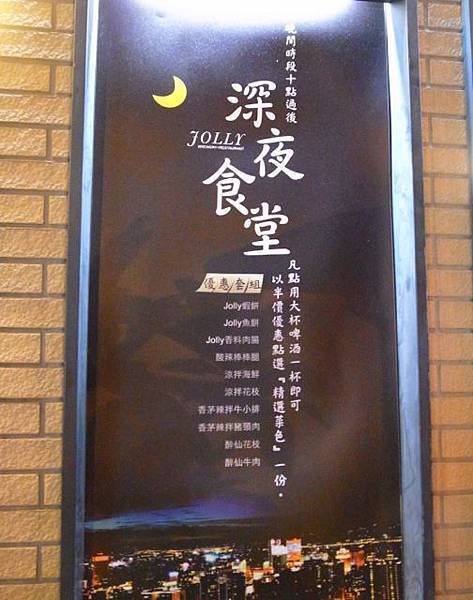 晚間時段十點過後
深夜食堂
JOLLY
BREWERY+RESTAURANT
凡點用大杯啤酒一杯即可
以半價優惠點選『精選菜色』一份。
優惠套組
Jolly蝦餅
Jolly魚餅
Jolly香料肉腸
酸辣棒棒腿
涼拌海鮮
涼拌花枝
香茅辣拌牛小排
香茅辣拌豬頸肉
醉仙花枝
醉仙牛肉